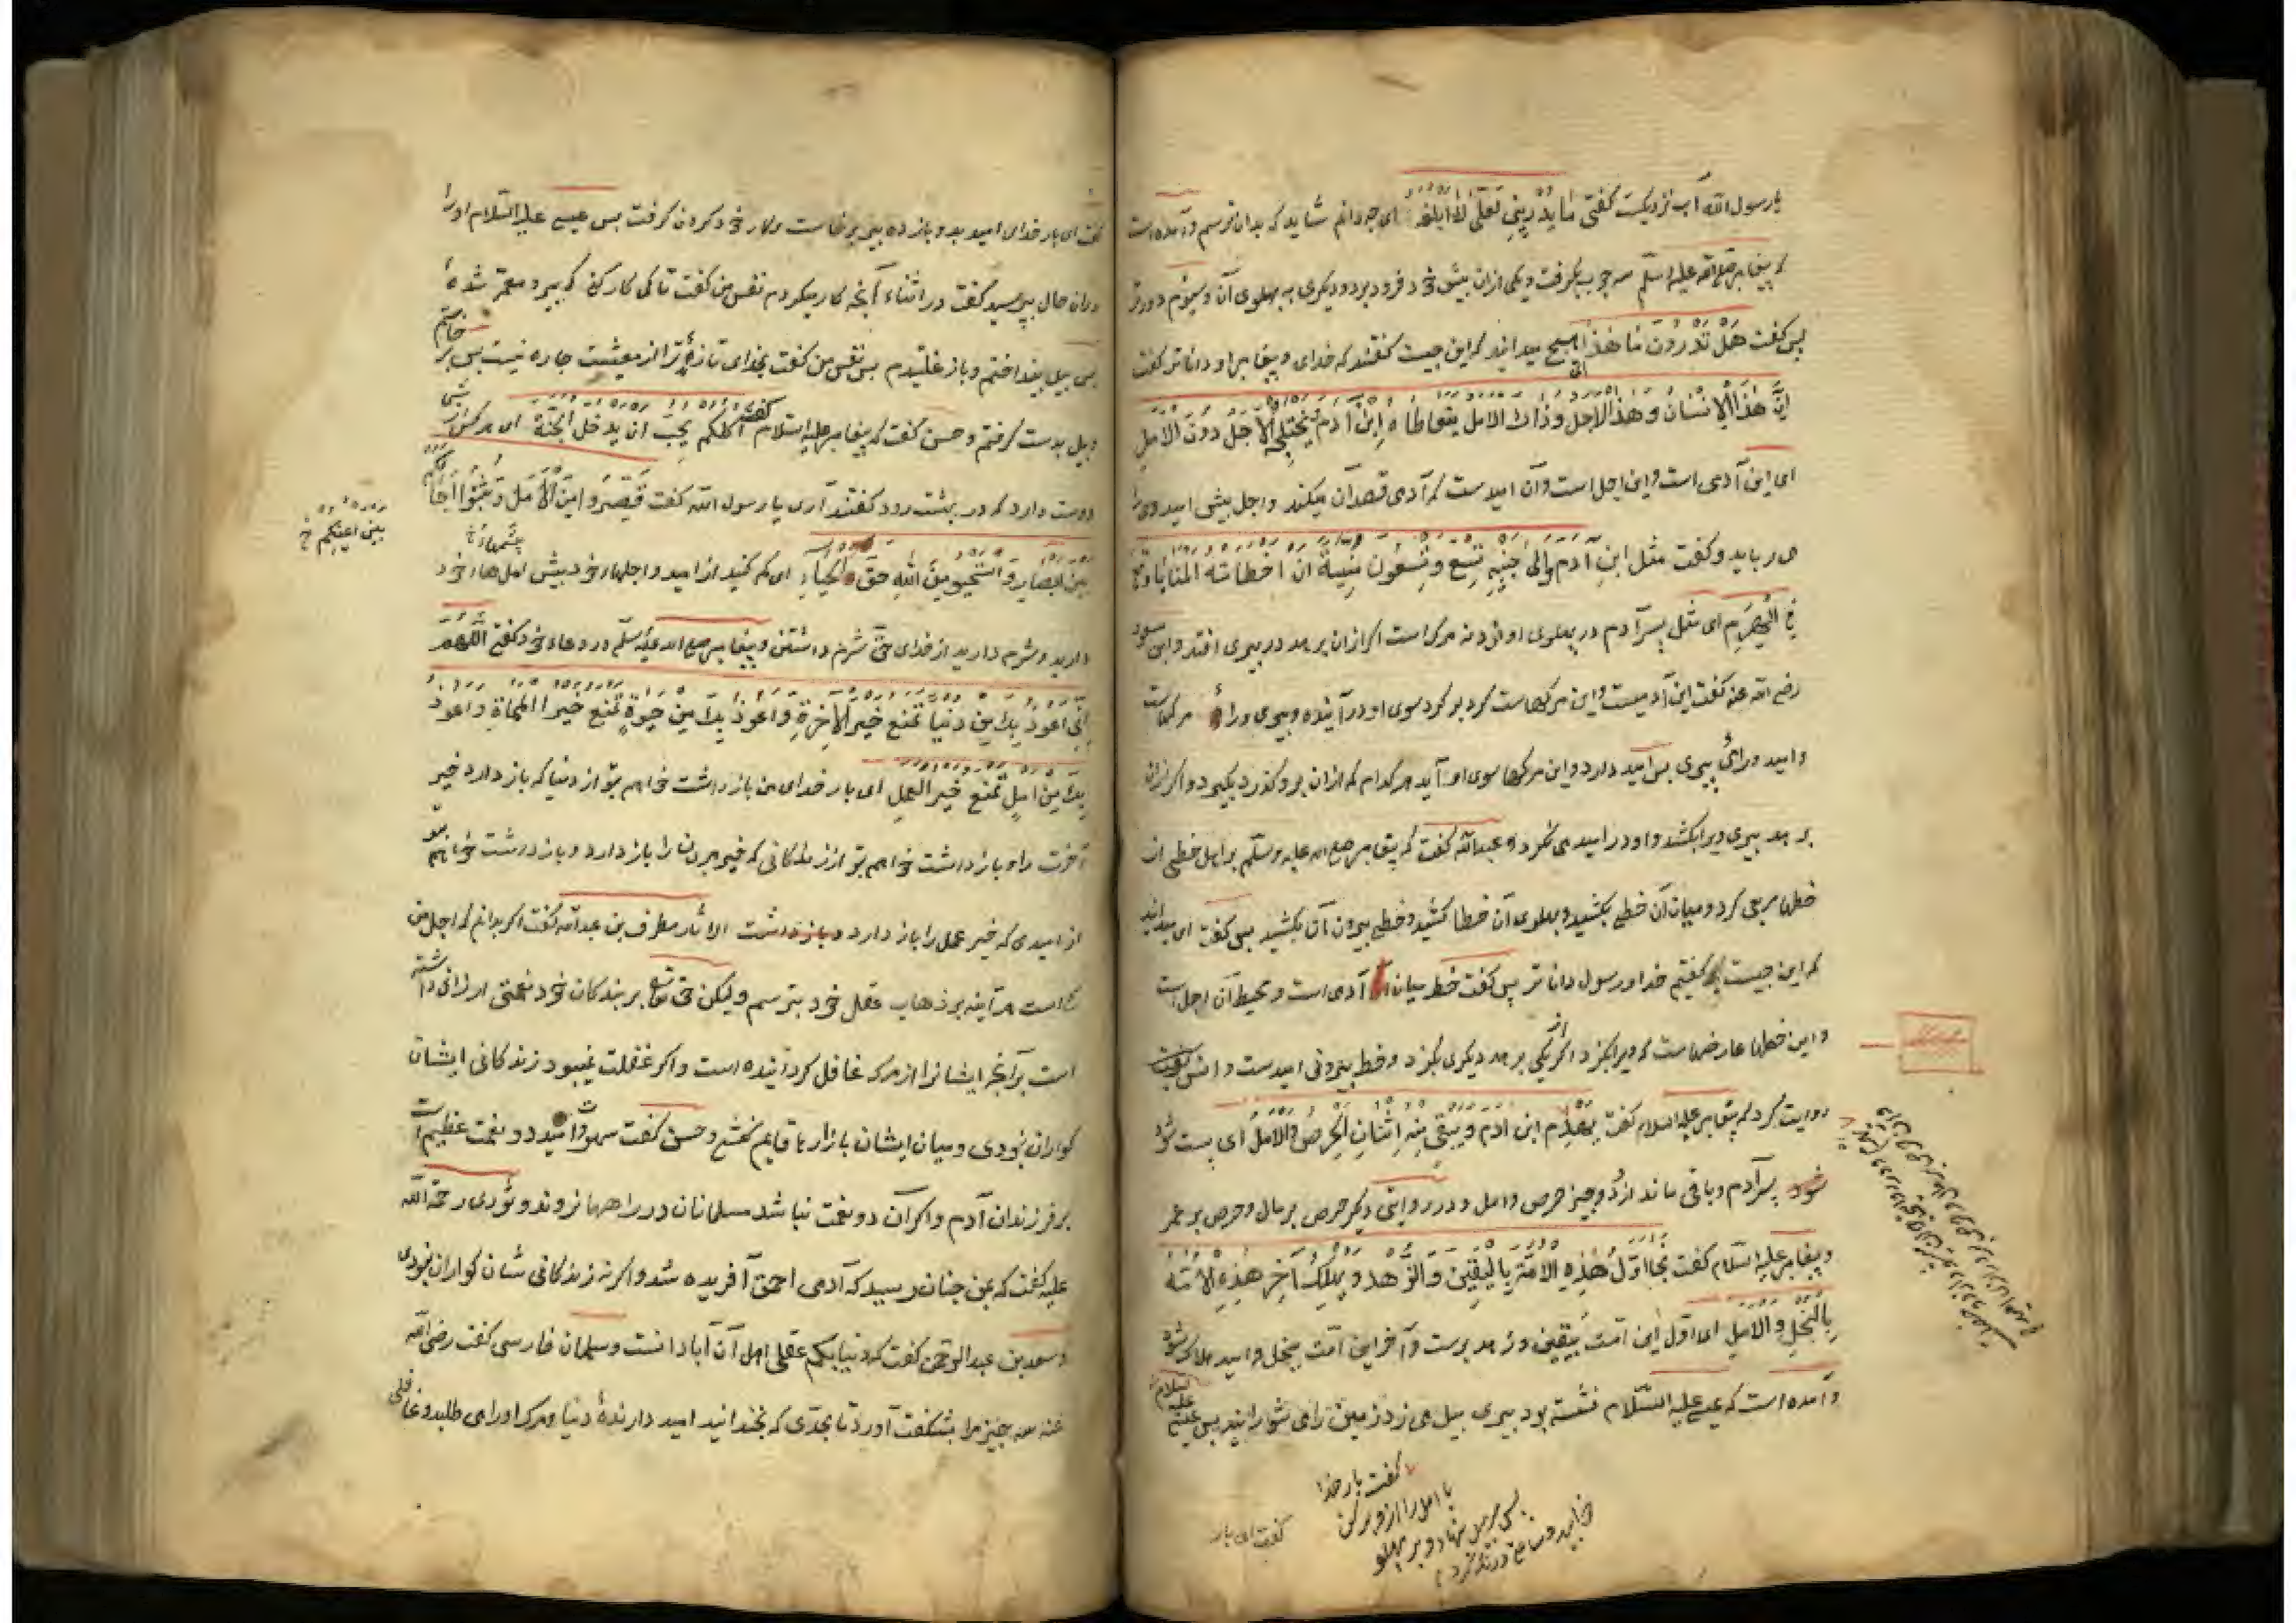 یا رسول الله آب نزدیکست گفتی ما یدرینی لعلی لا ابلغه ای چه دانم شاید که بدان نرسم و آمده است
که پیغامبر صلی الله علیه و سلم سه چوب بگرفت و یکی از ان پیش خود فرو برد و دیگری به پهلوی آن و سیوم دورتر
پس گفت هل تدرون ما هذا ای هیچ میدانید که این چیست گفتند که خدای و پیغامبر او داناتر گفت
ان هذا الانسان و هذا الاجل و ذاك الامل یتعاطاه ابن آدم و یختلجه الاجل دون الامل
ای این آدمی است و این اجل است و آن امیدست که آدمی قصد آن میکند و اجل پیش امید ویرا
می رباید و گفت مثل ابن آدم و الی جنبه تسع و تسعون منیة ان اخطاته المنایا وقع
فی الهرم ای مثل پسر آدم در پهلوی او نود نه مرک است اکر ازان برهد در پیری افتد و ابن مسعود
رضی الله عنه گفت این آدمیست و این مرکهاست کرد بر کرد سوی او در آینده و پیری ورای مرکهاست
و امید ورای پیری پس امید دارد و این مرکها سوی او آید هر کدام که ازان برو کذرد بکیرد و اکر ازان
برهد پیری ویرا بکشد و او در امید می نکرد و عبدالله گفت که پیغامبر صلی الله علیه و سلم برای ما خطی از
خطها مربع کرد و میان آن خطی بکشید و پهلوی آن خطها کشید و خطی بیرون آن بکشید پس گفت ای میدانید
که این چیست گفتیم خدا و رسول داناتر پس گفت خط میان آدمی است و محیط آن اجل است
و این خطها عارضهاست که ویرا بکزد اکر از یکی برهد دیگری بکزد و خط بیرونی امیدست و انس
روایت کرد که پیغامبر علیه السلام گفت یهرم ابن آدم و یبقی منه اثنان الحرص و الامل ای پست شود
پسر آدم و باقی ماند ازو دو چیز حرص و امل و در روایتی دیگر حرص بر مال و حرص بر عمر
و پیغامبر علیه السلام گفت نجا اول هذه الامة بالیقین و الزهد و یهلك آخر هذه الامة
بالبخل و الامل ای اول این امت بیقین و زهد برست و آخر این امت ببخل و امید هلاک شود
و آمده است که عیسی علیه السلام نشسته بود پیری بیل می زد زمین را می شورانید پس عیسی علیه السلام
گفت بار خدا
یا امل را ازو بر کن
پس پیر بیل بنهاد و بر پهلو
گفت ای بار
گفت ای بار خدای امید بدو باز ده پیر برخاست و کار خود کردن گرفت پس عیسی علیه السلام او را
دران حال بپرسید گفت در اثناء آنچه کار میکردم نفس من گفت تا کی کار کنی که پیر و معمر شدهٔ
پس بیل بینداختم و باز غلتیدم پس نفس من گفت بخدای تا زندهٔ ترا از معیشت چاره نیست پس برخاستم
و بیل بدست گرفتم و حسن گفت که پیغامبر علیه السلام گفت اکلکم یحب ان یدخل الجنة ای هر کس
دوست دارد که در بهشت رود گفتند آری یا رسول الله گفت فقصروا من الامل و ثبتوا آجالکم
بین ابصارکم و استحیوا من الله حق الحیاء ای کم کنید از امید و اجلهاء خود پیش چشمهاء خود
بین اعینکم خ
دارید و شرم دارید از خدای حق شرم داشتن و پیغامبر صلی الله علیه و سلم در دعاء خود گفتی اللهم
انی اعوذ بك من دنیا تمنع خیر الآخرة و اعوذ بك من حیوة تمنع خیر الممات و اعوذ
بك من امل تمنع خیر العمل ای بار خدای من باز داشت خواهم بتو از دنیا که باز دارد خیر
آخرت را و باز داشت خواهم بتو از زندکانی که خیر مردن را باز دارد و باز داشت خواهم بتو
از امیدی که خیر عمل را باز دارد الآثار مطرف بن عبدالله گفت اکر بدانم که اجل من
کی است هر آینه بر ذهاب عقل خود بترسم و لیکن حق تعالی بر بندکان خود نعمتی ارزانی داشته
است برآنچه ایشانرا از مرک غافل کردانیده است و اکر غفلت نمیبود زندکانی ایشان
کواران نبودی و میان ایشان بازارها قایم نکشتی و حسن گفت سهو و امید دو نعمت عظیم است
بر فرزندان آدم و اکر آن دو نعمت نباشد مسلمانان در راهها نروند و ثوری رحمة الله
علیه گفت که بمن چنان رسید که آدمی احمق آفریده شد و اکرنه زندکانی شان کواران نبودی
و سعد بن عبدالرحمن گفت که دنیا بکم عقلی اهل آن آبادانست و سلمان فارسی گفت رضی الله
عنه سه چیز مرا بشکفت آورد تا بحدی که بخندانید امید دارندهٔ دنیا و مرک او را می طلبد و غافلی